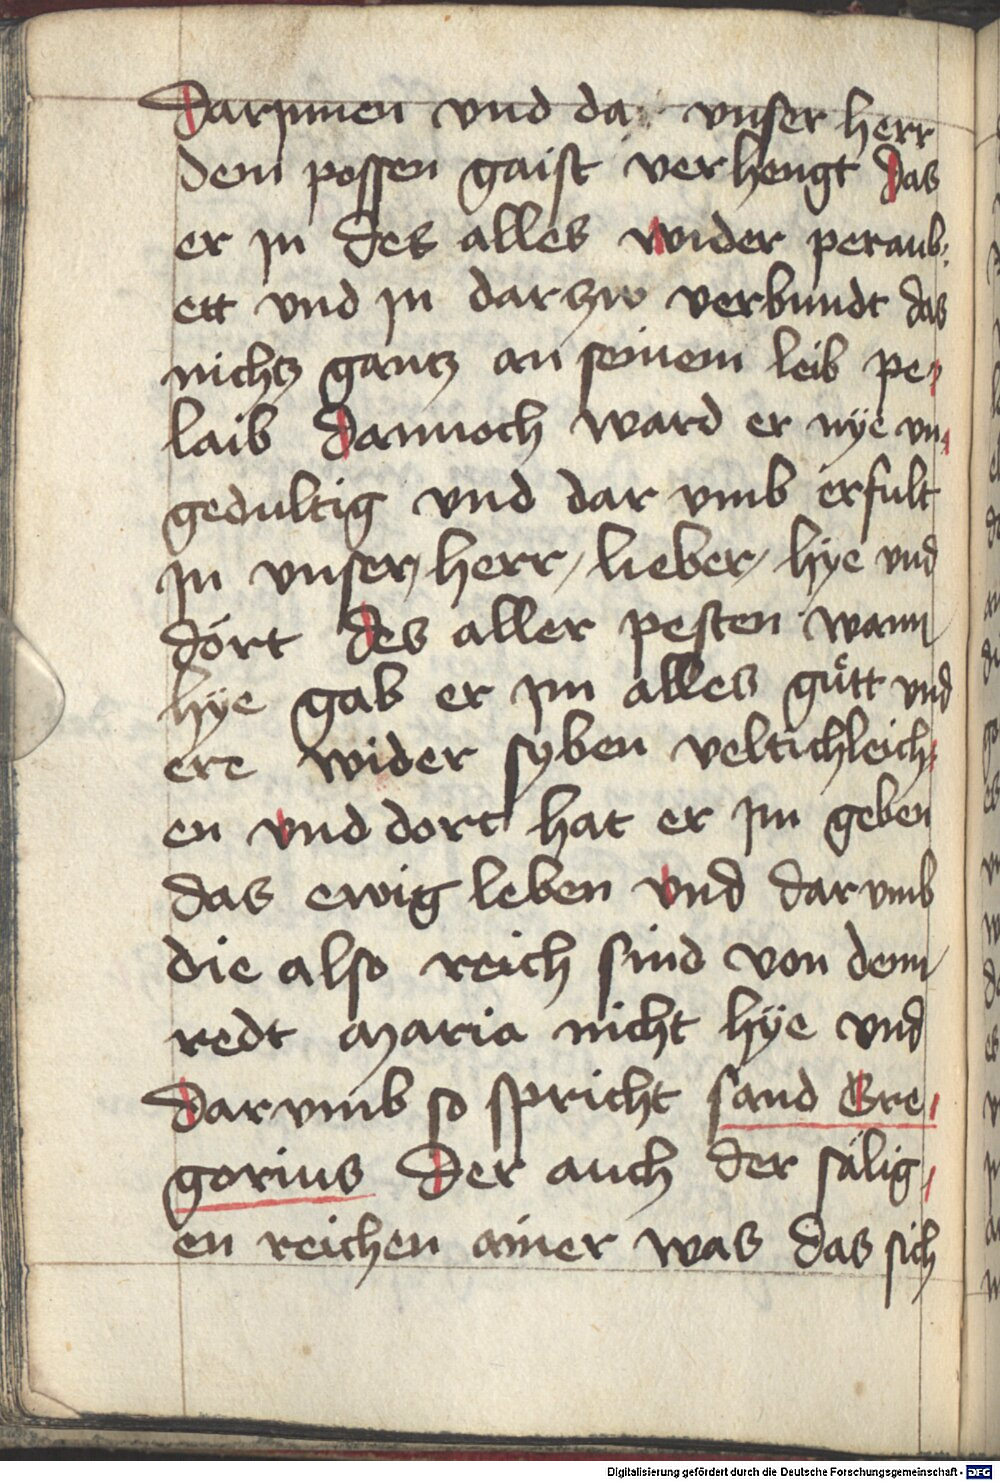 Darjnnen vnd da vnser herr
dem possen gaist verhengt das
er jn des alles wider peraub⸗
ett vnd jn darzw verbundt das
nichtz gantz an seinem leib pe⸗
laib Dannoch ward er nÿe vn⸗
gedultig vnd dar vmb erfult
jn vnser / herr / lieber / hÿe vnd
dört des aller pesten wann
hÿe gab er jm alles guͤtt vnd
ere wider syben veltichleich⸗
en vnd dort hat er jm geben
das ewig leben vnd darvmb
die also reich sind von denn
redt maria nicht hÿe vnd
Darvmb so spricht sand Gre⸗
gorius Der auch der sälig⸗
en reichen ainer was das sich
Digitalisierung gefördert durch die Deutsche Forschungsgemeinschaft - DFG